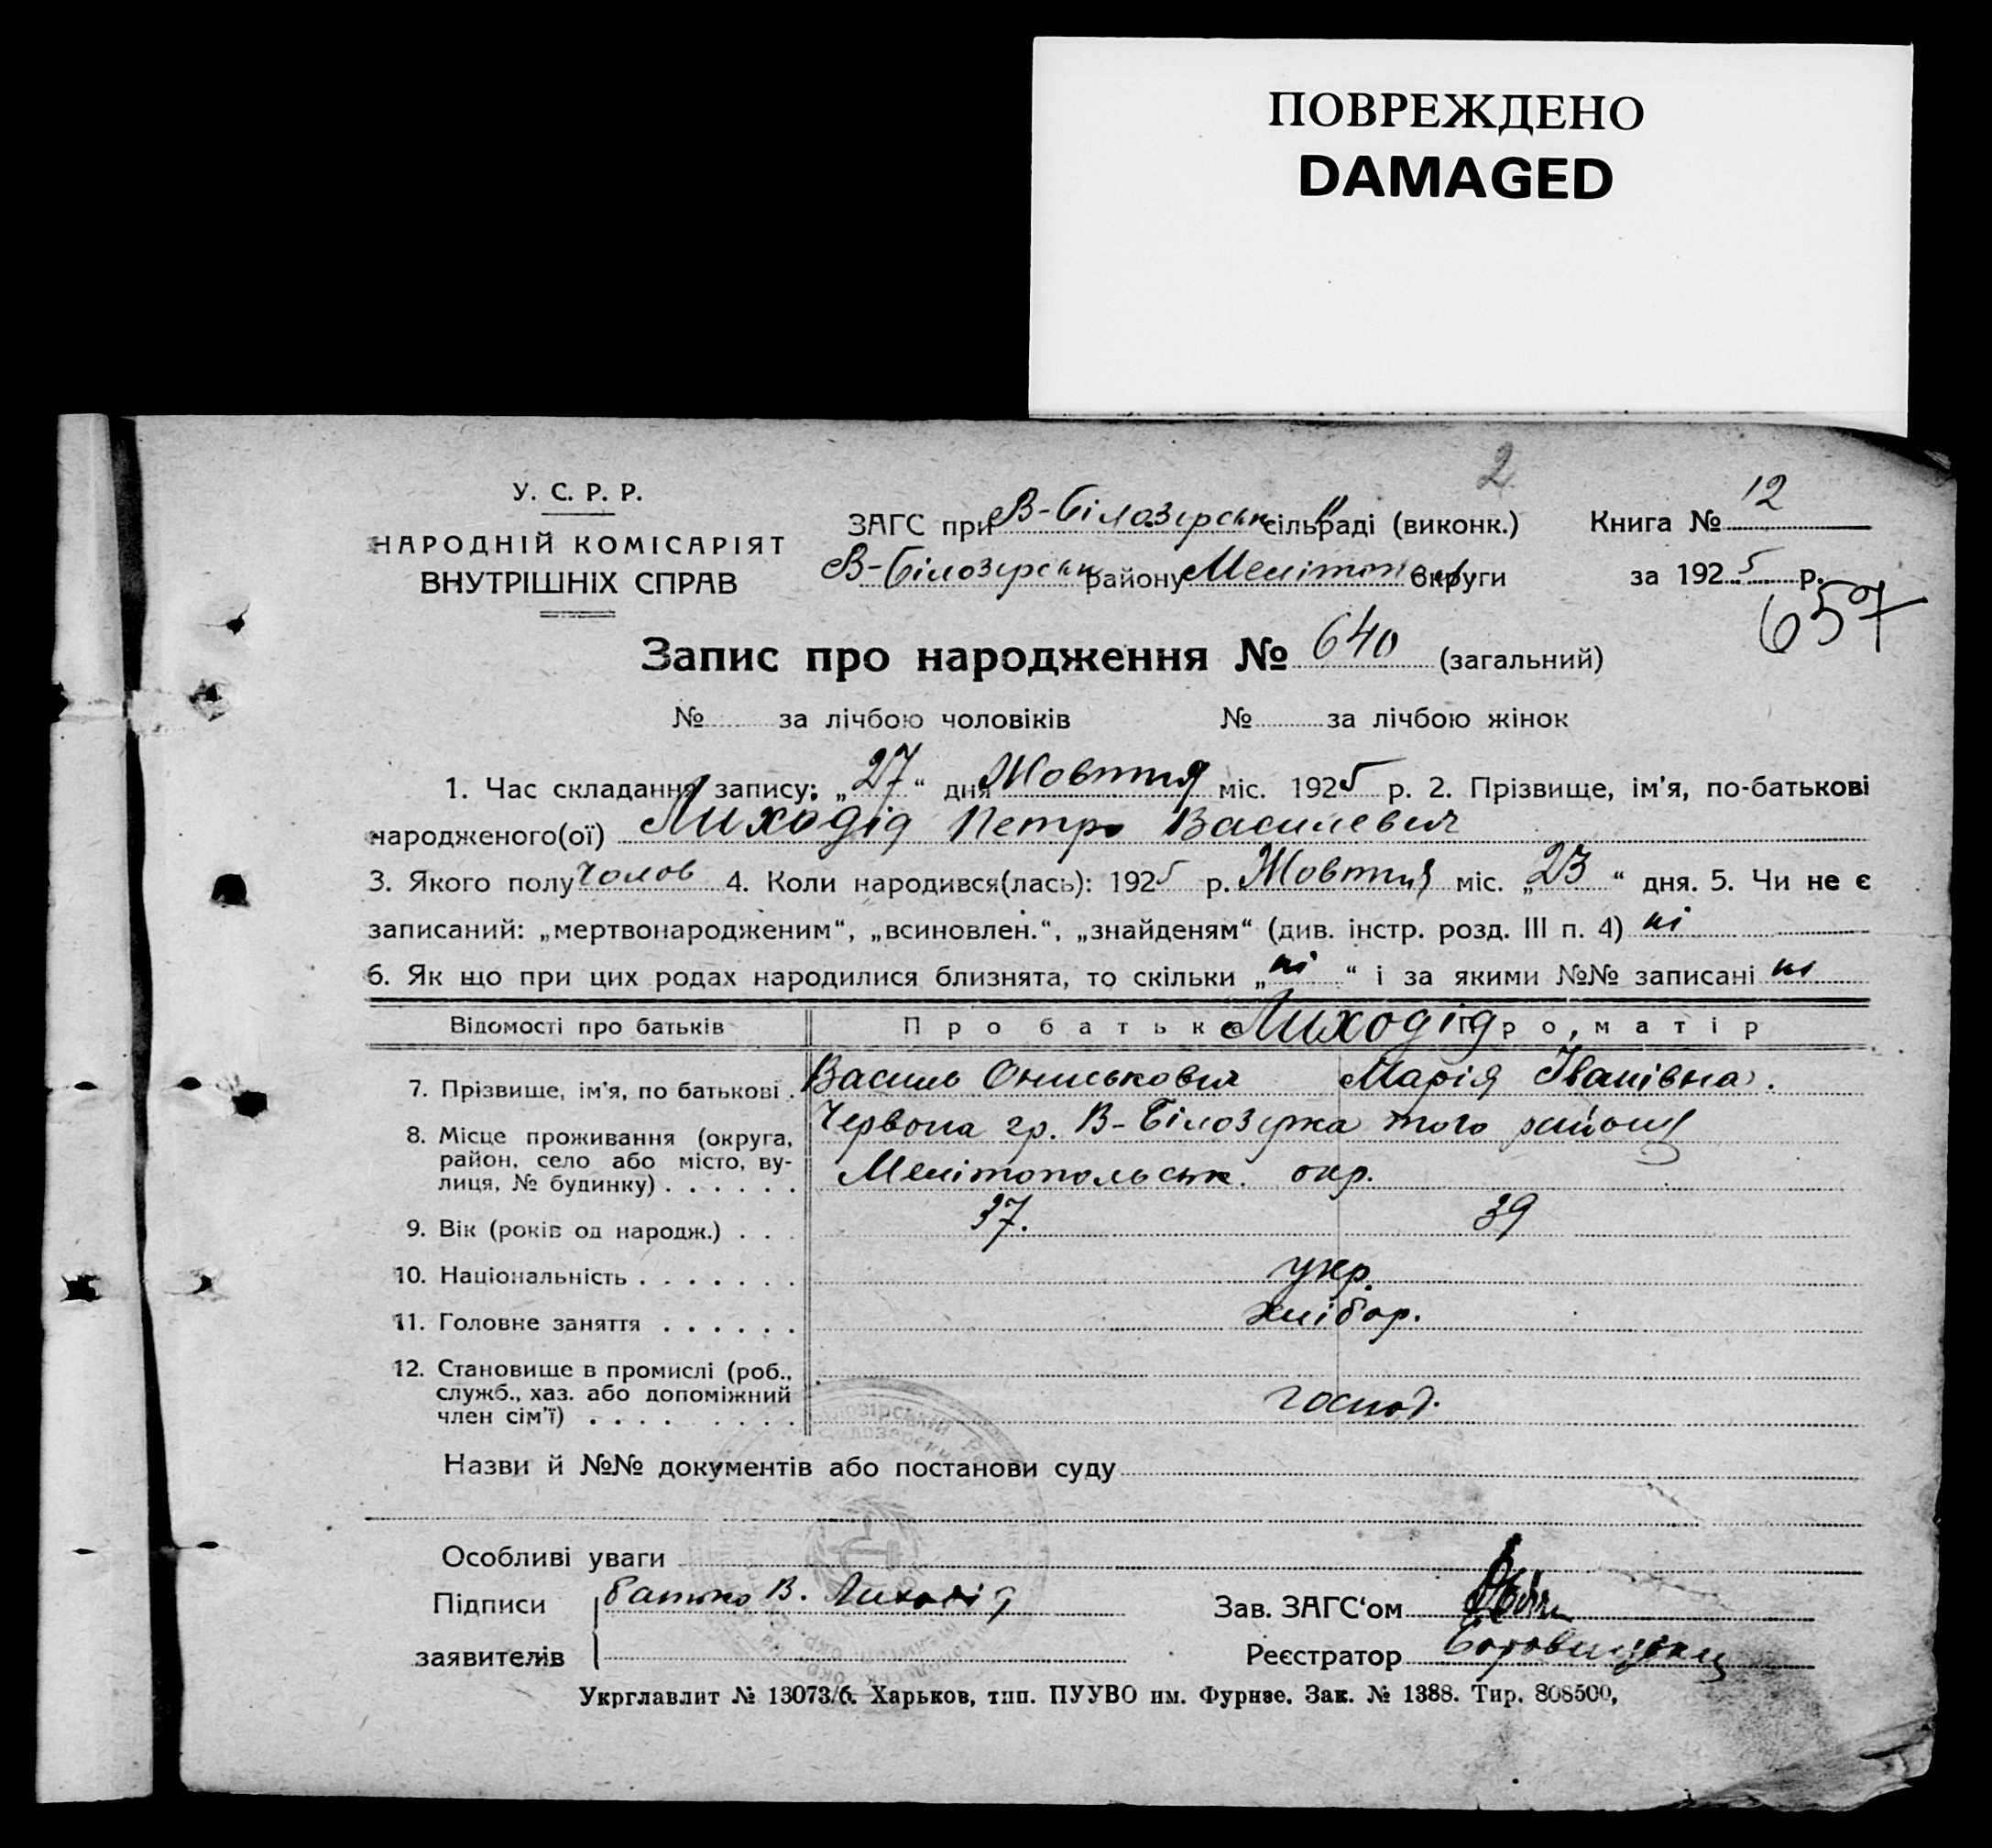 ПОВРЕЖДЕНО
DAMAGED
2
У. С. Р. Р.
НАРОДНІЙ КОМІСАРІЯТ
ВНУТРІШНІХ СПРАВ
ЗАГС при В-Білозерськ сільраді (виконк.)
В-Білозерськ району Мелітоп округи
Книга № 12
за 1925 р.
657
Запис про народження № 640 (загальний)
№ за лічбою чоловіків № за лічбою жінок
1. Час складання запису: „27“ дня Жовтня міс. 1925 р. 2. Прізвище, ім'я, по-батькові
народженого(ої) Лиходід Петро Василевич
3. Якого полу чолов 4. Коли народився(лась): 1925 р. Жовтня міс. „23“ дня. 5. Чи не є
записаний: „мертвонародженим“, „всиновлен.“, „знайденям“ (див. інстр. розд. III п. 4) ні
6. Як що при цих родах народилися близнята, то скільки „ні“ і за якими №№ записані ні
Відомості про батьків Про батька Лиходід Про матір
7. Прізвище, ім'я, по батькові . Василь Ониськович Марія Іванівна.
8. Місце проживання (округа, Червона гр. В-Білозерка того району
район, село або місто, ву-
лиця, № будинку) . . . . . . Мелітопольськ. окр.
9. Вік (років од народж.) . . . 37. 39
10. Національність . . . . . . . укр.
11. Головне заняття . . . . . . хлібор.
12. Становище в промислі (роб.,
служб., хаз. або допоміжний господ.
член сім'ї) . . . . . . . . .
Назви й №№ документів або постанови суду
Особливі уваги
Підписи батько В. Лиходід Зав. ЗАГС‘ом
заявителів Реєстратор
Укрглавлит № 13073/б. Харьков, тип. ПУУВО им. Фрунзе. Зак. № 1388. Тир. 808500,